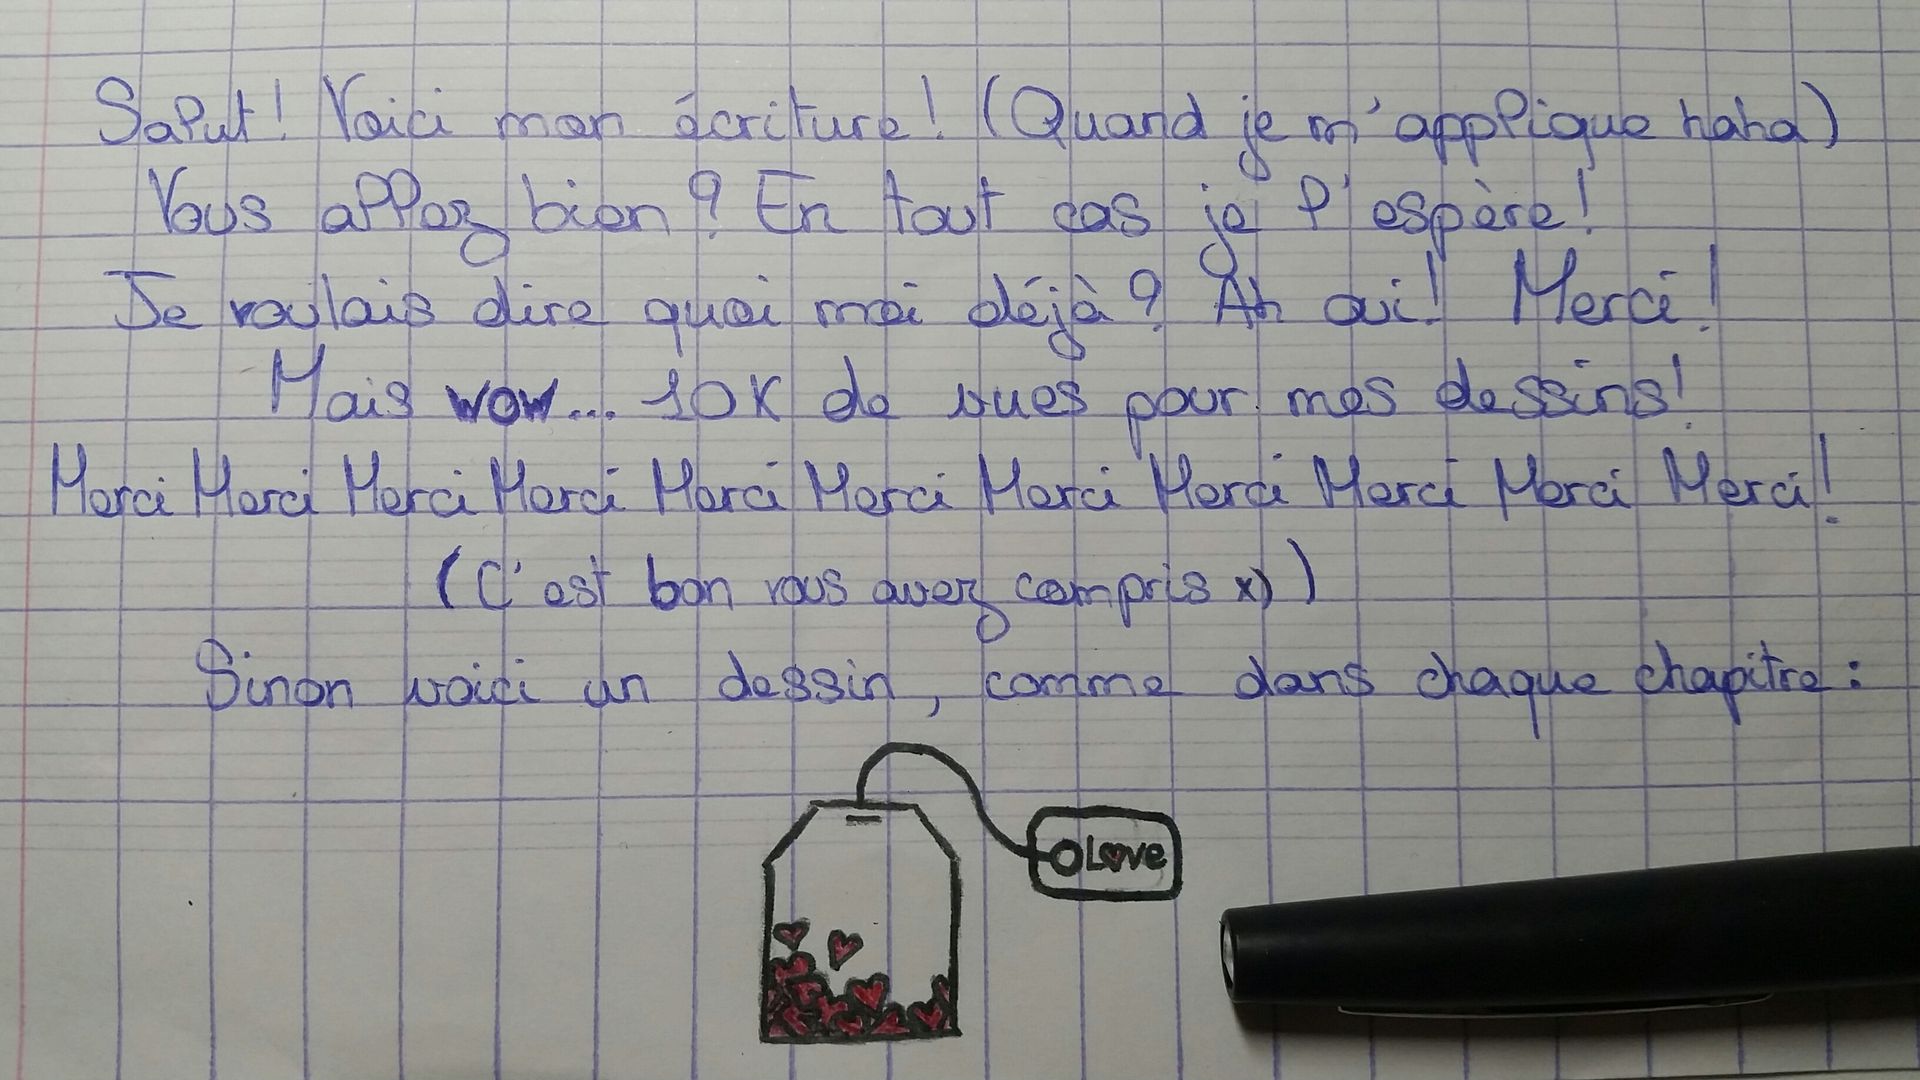 Salut! Voici mon écriture! (Quand je m'applique haha)
Vous allez bien? En tout cas je l'espère!
Je voulais dire quoi moi déjà? Ah oui! Merci!
Mais wow... 10K de vues pour mes dessins!
Merci Merci Merci Merci Merci Merci Merci Merci Merci Merci Merci!
(C'est bon vous avez compris x))
Sinon voici un dessin, comme dans chaque chapitre:
Love